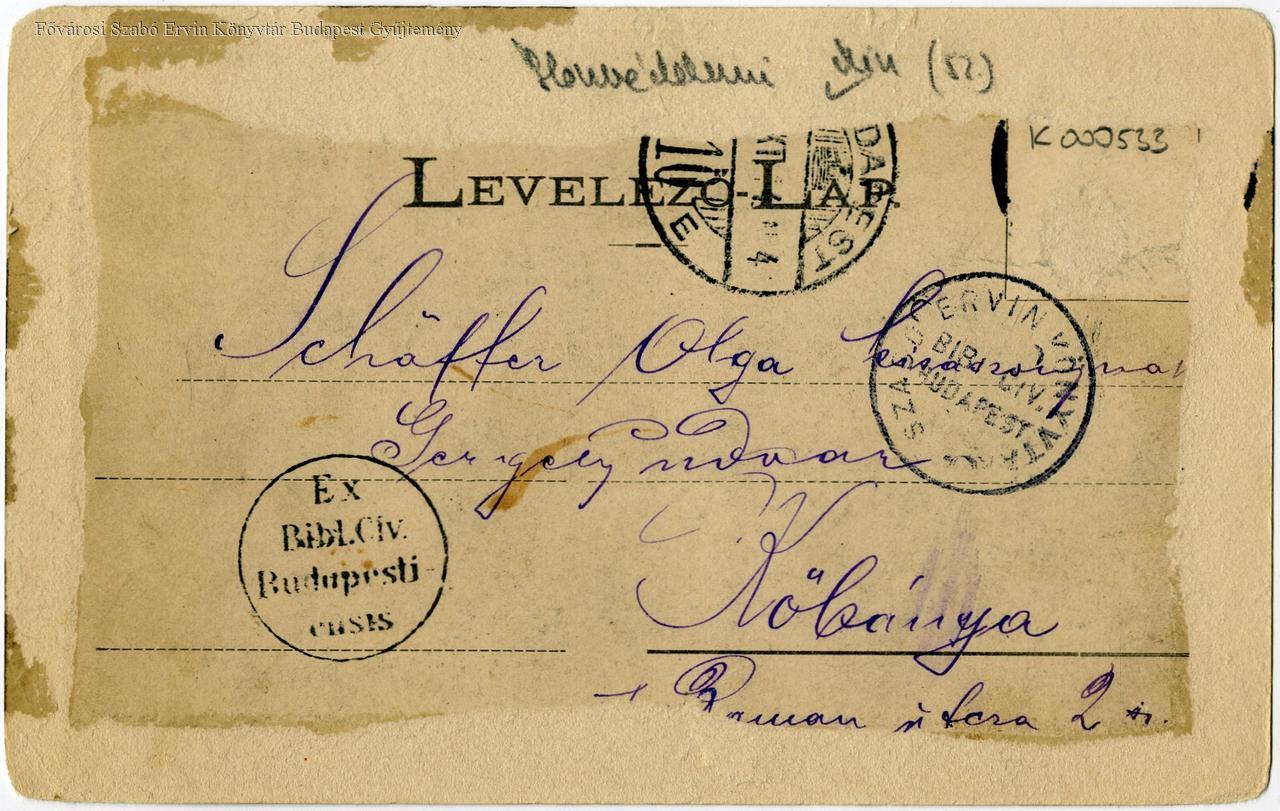 Fővárosi Szabó Ervin Könyvtár Budapest Gyűjtemény
Honvédelmi Min (52)
K 000533
LEVELEZŐ-LAP.
BUDAPEST
10 E
4
Schäffer Olga
SZABÓ ERVIN KÖNYVTÁR
BIBL. CIV.
BUDAPEST
Gergely udvar
Ex
Bibl. Civ.
Budapesti-
ensis
Kőbánya
utcza 2 sz.